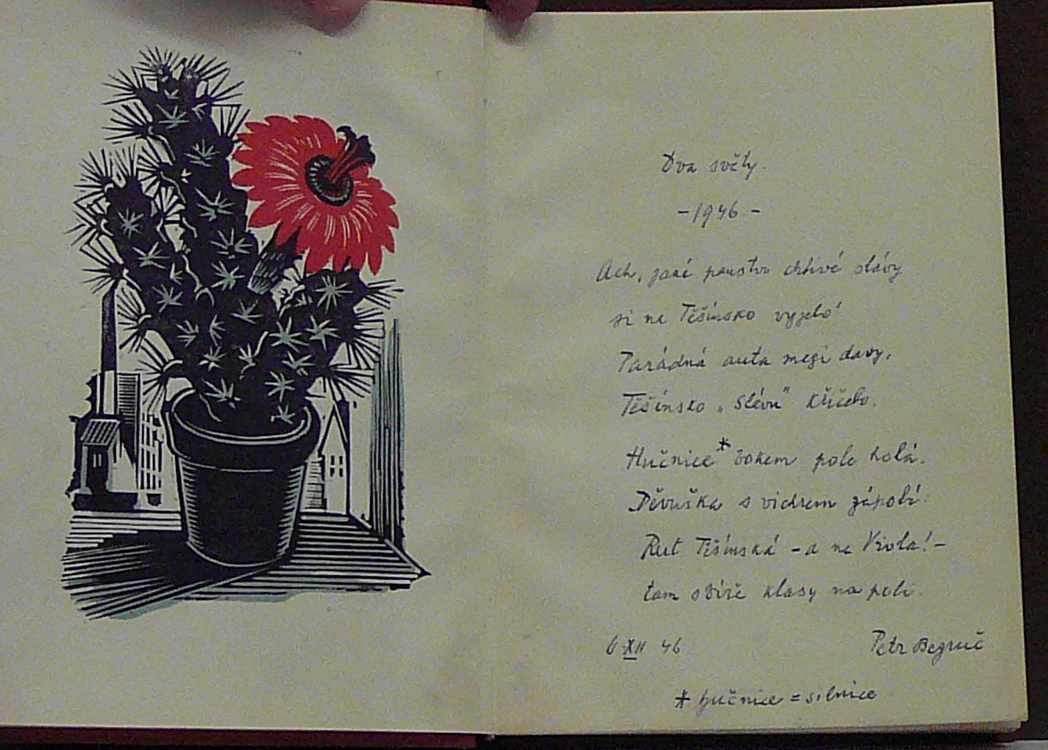 Dva světy.
-1946-
Ach, jaké panstvo chtivé slávy
si na Těšínsko vyjelo!
Parádná auta mezi davy,
Těšínsko „Slávu" křičelo.
Hučnice* bokem pole holá.
Děvuška s vichrem zápolí:
Rut Těšínská - a ne Viola! -
tam sbírá klasy na poli.
6 XII 46
Petr Bezruč
* hučnice = silnice